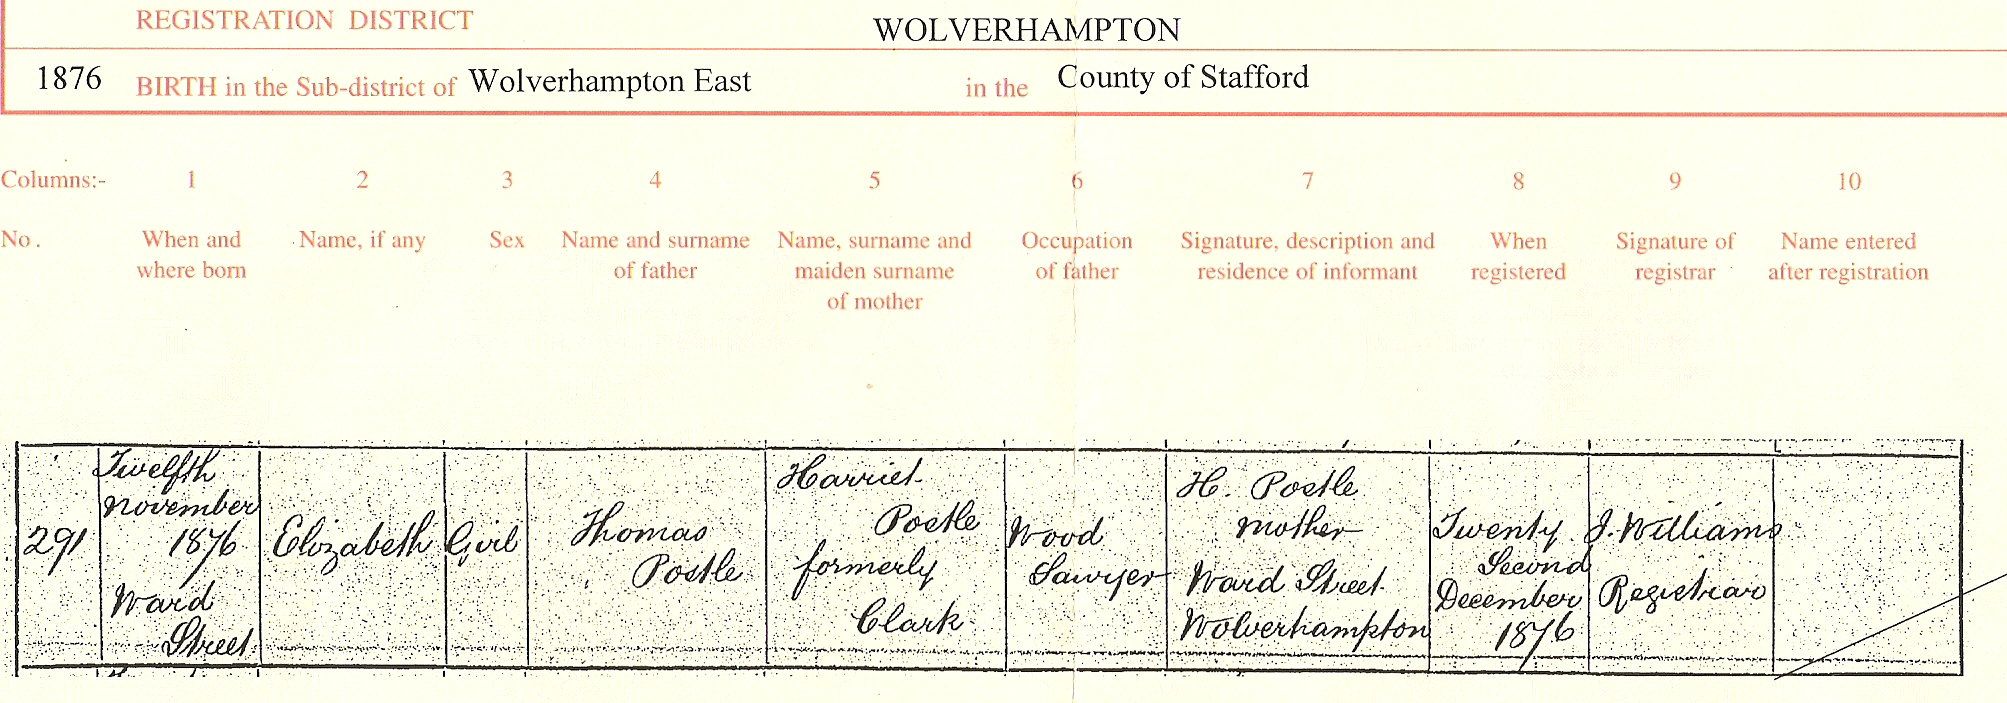 REGISTRATION DISTRICT WOLVERHAMPTON
1876 BIRTH in the Sub-district of Wolverhampton East in the County of Stafford
Columns:- 1 2 3 4 5 6 7 8 9 10
No. When and where born
Name, if any
Sex
Name and surname
of father
Name, surname and
maiden surname
of mother
Occupation
of father
Signature, description and
residence of informant
When
registered
Signature of
registrar
Name entered
after registration
291
Twelfth
November
1876
Ward
Street
Elizabeth
Girl
Thomas
Postle
Harriet
Postle
formerly
Clark
Wood
Sawyer
H. Postle
Mother
Ward Street
Wolverhampton
Twenty
Second
December
1876
J. Williams
Registrar